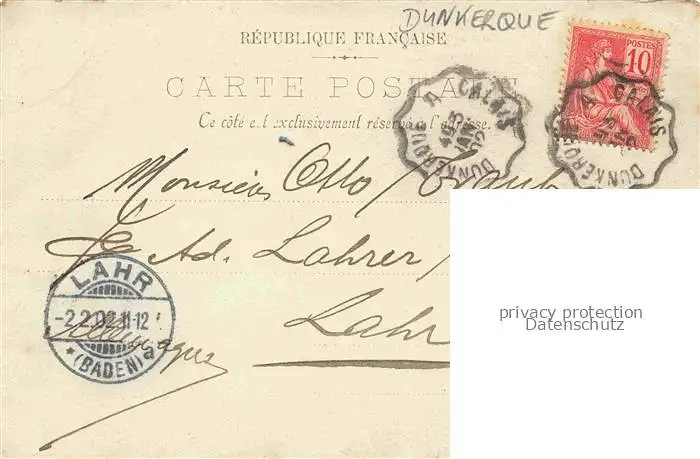 DUNKERQUE
RÉPUBLIQUE FRANÇAISE
POSTES
10
CARTE POSTALE
Ce côté est exclusivement réservé à l'adresse.
DUNKERQUE A CALAIS
JANV 02
DUNKERQUE A CALAIS
Monsieur Otto
Ad. Lahrer
Lahr
Allemagne
LAHR
-2.2.02.11-12
*(BADEN)a
privacy protection
Datenschutz